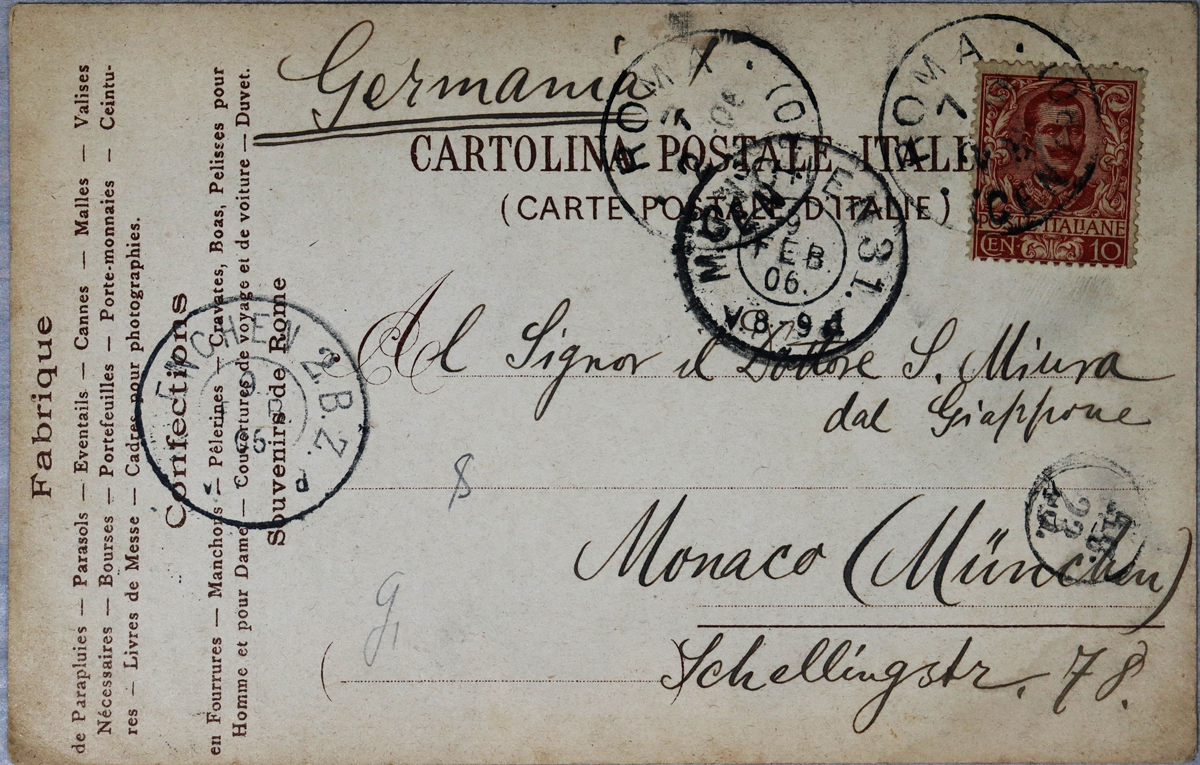 Germania
CARTOLINA POSTALE ITALI
(CARTE POSTALE D'ITALIE)
ROMA
ROMA
POSTE ITALIANE
CEN. 10
MÜNCHEN 31.
9
FEB
06.
V. 8-9
Al Signor il Dottore S. Miura
dal Giappone
Monaco (München)
Schellingstr. 78.
Fabrique
de Parapluies — Parasols — Eventails — Cannes — Malles — Valises
Nécessaires — Bourses — Portefeuilles — Porte-monnaies — Ceintu-
res — Livres de Messe — Cadres pour photographies.
Confections
en Fourrures — Manchons — Pêlerines — Cravates, Boas, Pelisses pour
Homme et pour Dame — Couvertures de voyage et de voiture — Duvet.
Souvenirs de Rome
23